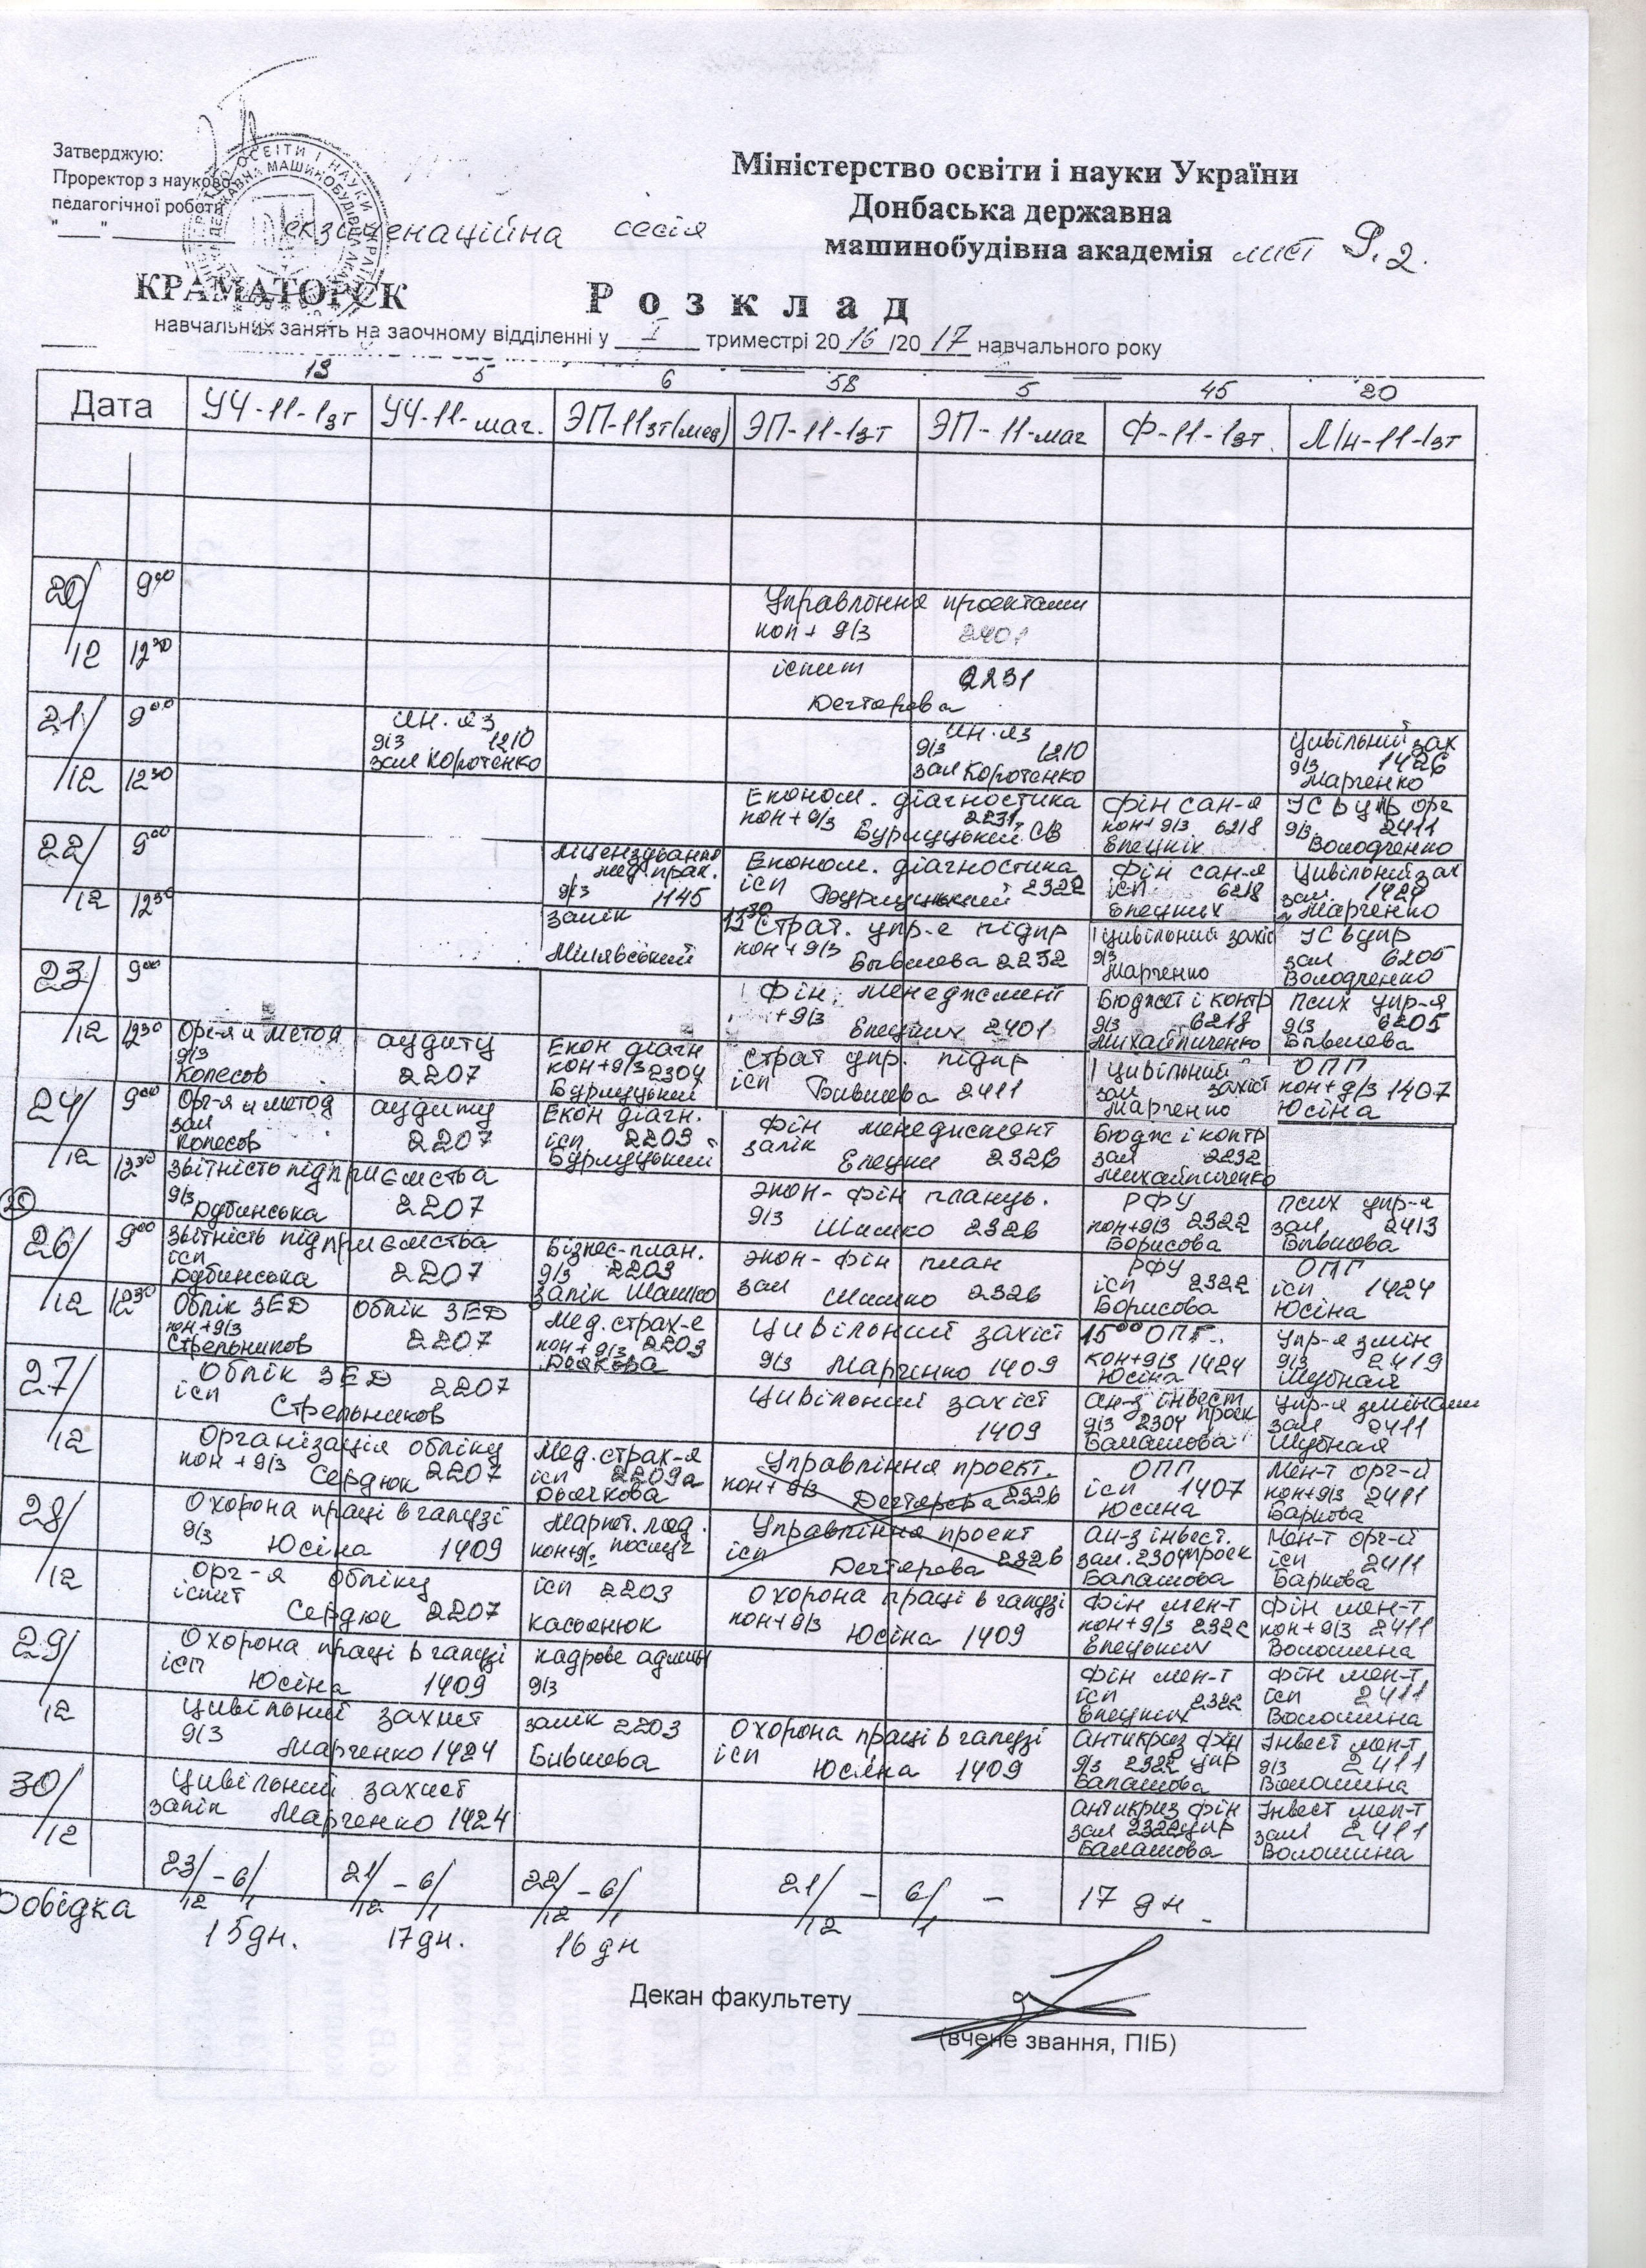 Затверджую:
Проректор з науково-
педагогічної роботи
"___" ________ екзаменаційна сесія
Міністерство освіти і науки України
Донбаська державна
машинобудівна академія лист
КРАМАТОРСК
Розклад
навчальних занять на заочному відділенні у I триместрі 2016/2017 навчального року
13 5 6 58 5 45 20
Дата УЧ-11-1зт УЧ-11-маг. ЭП-11зт(мед) ЭП-11-1зт ЭП-11-маг Ф-11-1зт. МН-11-1зт
20/12 9⁰⁰
Управління проектами
кон+ д/з 2401
12³⁰
іспит 2231
Дегтярева
21/12 9⁰⁰
ин. яз
д/з 1210
зал Коротенко
ин. яз
д/з 1210
зал Коротенко
Цивільний зах
д/з 1426
Марченко
12³⁰
Економ. діагностика
кон+д/з 2231
Бурлуцький СВ
Фін сан-я
кон+д/з 6218
Єлецких
УС в упр орг
д/з 2411
Володченко
22/12 9⁰⁰
Ліцензування
мед. прак.
д/з 1145
Економ. діагностика
ісп Бурлуцький 2322
Фін сан-я
ісп. 6218
Єлецких
Цивільний зах
зал. 1424
Марченко
12³⁰
залік
Мілявський
13³⁰ Страт. упр-е підпр
кон+д/з Бывшева 2232
Цивільний захіс
д/з
Марченко
УС в упр
зал 6205
Володченко
23/12 9⁰⁰
Фін. менеджмент
+д/з
Єлецких 2401
Бюджет і контр
д/з 6218
Михайличенко
псих упр-я
д/з 6205
Бывшева
12³⁰
Орг-я и метод аудиту
д/з
Колесов 2207
Екон діагн
кон+д/з 2304
Бурлуцький
Страт упр. підпр
ісп Бившева 2411
Цивільний
зал захіст
Марченко
ОПП
кон+д/з 1407
Юсіна
24/12 9⁰⁰
Орг-я и метод аудиту
зал
Колесов 2207
Екон діагн.
ісп 2203
Бурлуцький
Фін менеджмент
залік Єлецки 2326
Бюдж і контр
зал 2232
Михайличенко
12³⁰
Звітність підприємства
д/з
Дубинська 2207
экон-фін плануь.
д/з Шимко 2326
РФУ
кон+д/з 2322
Борисова
псих упр-я
зал 2413
Бывшова
25
26/12 9⁰⁰
Звітність підприємства
ісп
Дубинська 2207
Бізнес-план.
д/з 2203
залік Шашко
экон-фін план
зал Шимко 2326
РФУ
ісп 2322
Борисова
ОПП
ісп 1424
Юсіна
12³⁰
Облік ЗЕД Облік ЗЕД
кон+д/з
Стрельников 2207
Мед. страх-е
кон+д/з 2203
Цивільний захіст
д/з Марченко 1409
15⁰⁰ ОПГ.
кон+д/з 1424
Юсіна
Упр-я змін
д/з 2419
Шубная
27/12
Облік ЗЕД 2207
ісп
Стрельников
Цивільний захіст
1409
Ан-з інвест
д/з 2304 проек
Балашова
Упр-я змінами
зал 2411
Шубная
Організація обліку
кон+д/з Сердюк 2207
Мед. страх-я
ісп 2209а
Дьячкова
Управління проект.
кон+ д/з Дегтярева 2326
ОПП
ісп 1407
Юсина
Мен-т орг-й
кон+д/з 2411
Баркова
28/12
Охорона праці в галузі
д/з Юсіна 1409
Маркет. мед.
кон+д/з послуг
Управління проект
ісп Дегтерева 2326
Ан-з інвест.
зал. 2304 проек
Балашова
Мен-т орг-й
ісп 2411
Баркова
Орг-я обліку
іспит Сердюк 2207
ісп 2203
Касьянюк
Охорона праці в галузі
кон+д/з Юсіна 1409
Фін мен-т
кон+д/з 2322
Єлецьких
Фін мен-т
кон+д/з 2411
Волошина
29/12
Охорона праці в галузі
ісп Юсіна 1409
кадрове админ
д/з
Фін мен-т
ісп 2322
Єлецких
Фін мен-т
ісп 2411
Волошина
Цивільний захист
д/з Марченко 1424
залік 2203
Бившова
Охорона праці в галузі
ісп Юсіна 1409
Антикриз фін
д/з 2322 упр
Балашова
Інвест мен-т
д/з 2411
Волошина
30/12
Цивільний захист
залік Марченко 1424
Антикриз фін
зал 2322 упр
Балашова
Інвест мен-т
зал 2411
Волошина
Довідка 23/12 - 6/1 21/12 - 6/1 22/12 - 6/1 21/12 - 6/1 - 17 дн
15дн. 17дн. 16 дн
Декан факультету
(вчене звання, ПІБ)